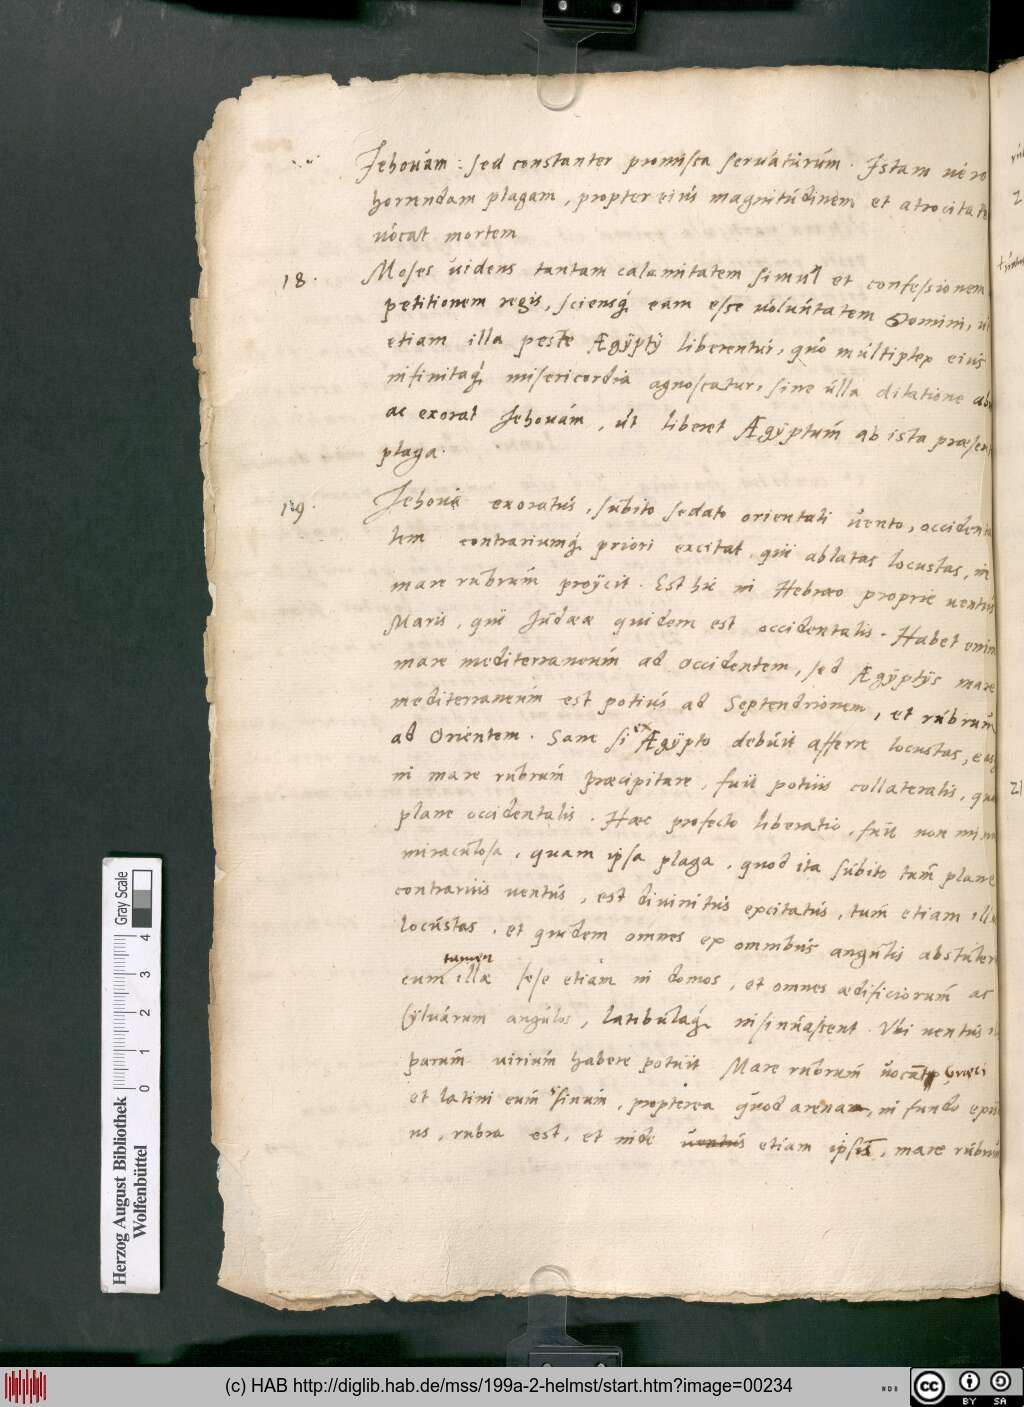 Jehouam: sed constanter promissa seruaturum. Istam uero
horrendam plagam, propter eius magnitudinem et atrocitate
uocat mortem
18. Moses uidens tantam calamitatem simul et confessionem
petitionem regis, sciensq́ eam esse uoluntatem Domini, ut
etiam illa peste Ægÿptÿ liberentur, quo multiplex eius
infinitaq́ misericordia agnoscatur, sine ulla dilatione
ac exorat Jehouam, ut liberet Ægÿptum ab ista præsen
plaga.
19. Jehoua exoratus, subito sedato orientali uento, occidenta
lem contrariumq́ priori excitat, qui ablatas locustas, in
mare rubrum proÿcit. Est hic in Hebræo proprie uentus
Maris, qui Judææ quidem est occidentalis. Habet enim
mare mediterraneum ad Occidentem, sed Ægÿptÿs mare
mediterraneum est potius ad Septendrionem, et rubrum
ad Orientem. Sane si ex Ægÿpto debuit afferre locustas, eas
in mare rubrum præcipitare, fuit potius collateralis, qua
plane occidentalis. Hæc profecto liberatio, fuit non minu
miraculosa, quam ipsa plaga, quod ita subito tum plane
contrarius uentus, est diuinitus excitatus, tum etiam
locustas, et quidem omnes ex omnibus angulis abstuleri
cum tamen illæ sese etiam in domos, et omnes ædificiorum ac
sÿluarum angulos, latibulaq́ insinuassent. Vbi uentus
parum uirium habere potuit Mare rubrum uocant Græci
et latini eum sinum, propterea quod arena, in fundo
us, rubra est, et inde uentus etiam ipsis, mare rubru
21
Gray Scale
0 1 2 3 4
Herzog August Bibliothek
Wolfenbüttel
(c) HAB http://diglib.hab.de/mss/199a-2-helmst/start.htm?image=00234
cc BY SA